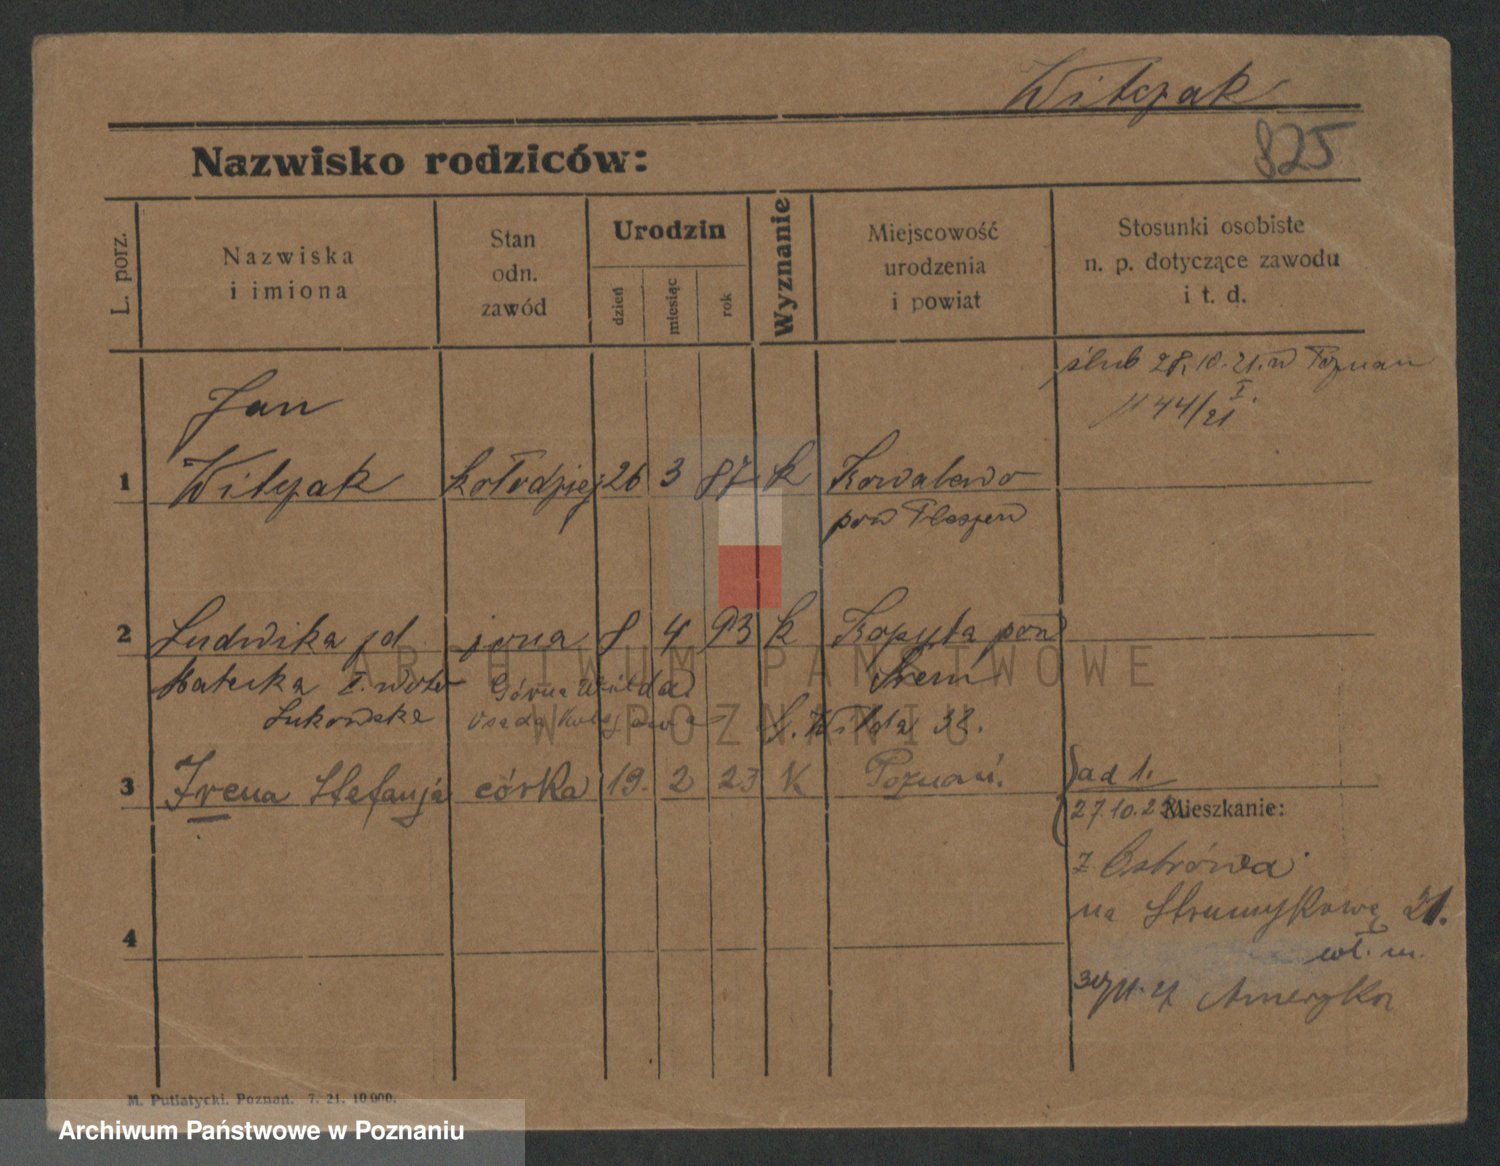 Witczak
825
Nazwisko rodziców:
L. porz.
Nazwiska
i imiona
Stan
odn.
zawód
Urodzin
dzień
miesiąc
rok
Wyznanie
Miejscowość
urodzenia
i powiat
Stosunki osobiste
n. p. dotyczące zawodu
i t. d.
ślub 28.10.21. w Poznan
44/21 I.
Jan
1 Witczak kołodziej 26 3 87 k Kowalewo
pow Pleszew
2 Ludwika żona 8 4 93 k Kopyta pow
Śrem
Górna Wilda
Łukowska
G. Wilda 38.
3 Irena Stefanja córka 19. 2 23 K Poznań. ad 1.
27.10.2 Mieszkanie:
z Ostrówa
na Strumykową 21.
wł. m.
Ameryka
4
M. Putiatycki. Poznań. 7. 21. 10 000.
ARCHIWUM PAŃSTWOWE
W POZNANIU
Archiwum Państwowe w Poznaniu